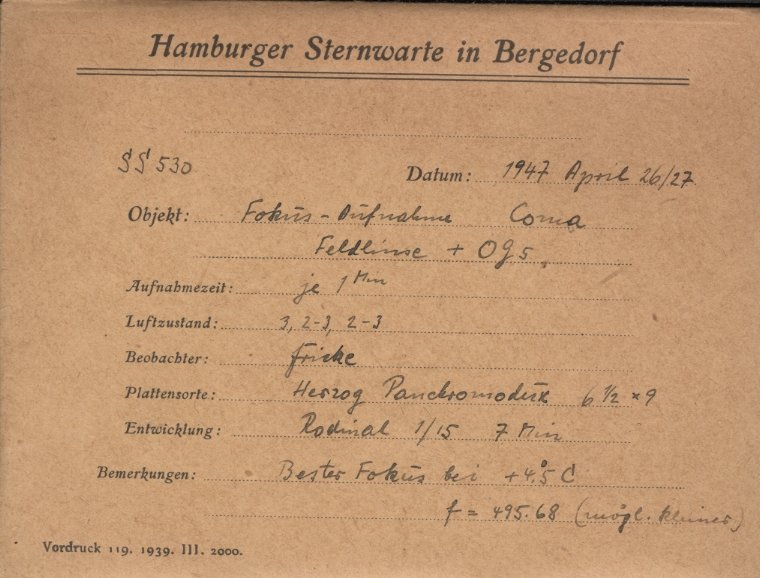 Hamburger Sternwarte in Bergedorf
SS 530
Datum: 1947 April 26/27
Objekt: Fokus-Aufnahme Coma
Feldlinse + OG5
Aufnahmezeit: je 1 Min
Luftzustand: 3, 2-3, 2-3
Beobachter: Fricke
Plattensorte: Herzog Panchromodux 6 1/2 × 9
Entwicklung: Rodinal 1/15 7 Min
Bemerkungen: Bester Fokus bei +4,5° C
f = 495.68 (mögl. kleiner)
Vordruck 119. 1939. III. 2000.